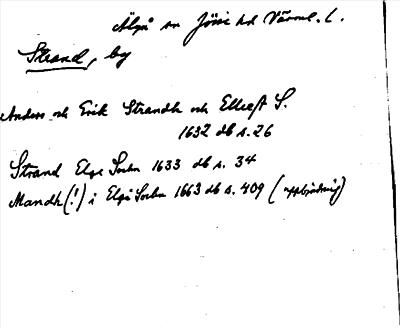 Älgå sn Jösse hd Värml. l.
Strand, by
Anders och Erik Strandh och Elleff S.
1632 db s. 26
Strand Elge Sochn 1633 db s. 34
Mandh (!) i Elgå Sochn 1663 db s. 409 (uppbjudning)